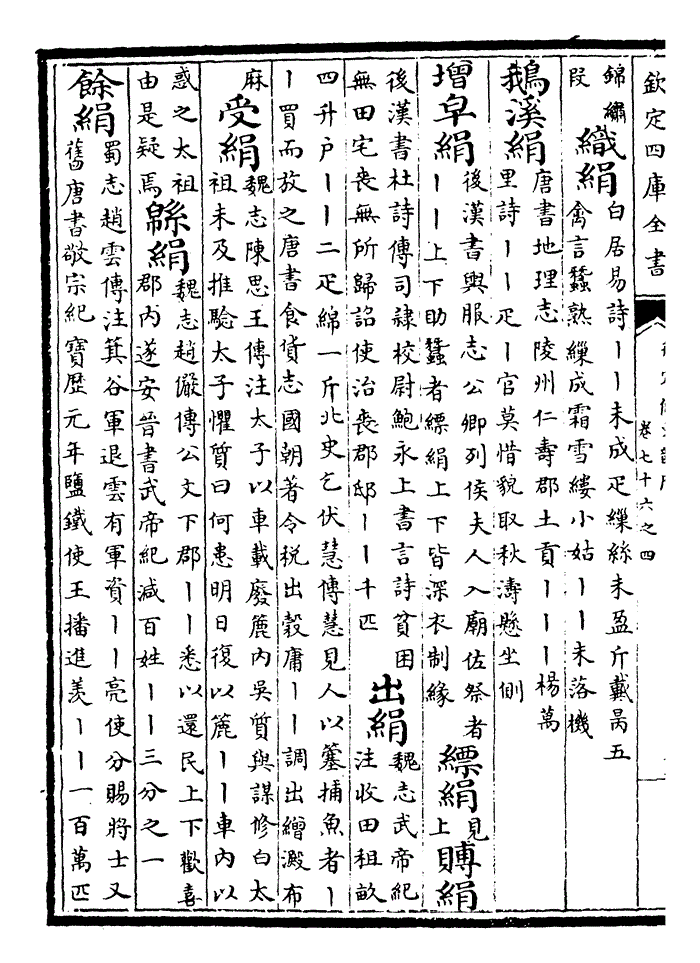 欽定四庫全書
卷七十六之四
錦繡
段
織絹
白居易詩丨丨未成疋繅絲未盈斤戴昺五
禽言蠶熟繅成霜雪縷小姑丨丨未落機
鵝溪絹
唐書地理志陵州仁壽郡土貢丨丨丨楊萬
里詩丨丨疋丨官莫惜貌取秋濤懸坐側
增皁絹
後漢書輿服志公卿列侯夫人入廟佐祭者
丨丨上下助蠶者縹絹上下皆深衣制緣
縹絹
見
上
賻絹
後漢書杜詩傳司隸校尉鮑永上書言詩貧困
無田宅喪無所歸詔使治喪郡邸丨丨千匹
出絹
魏志武帝紀
注收田租畝
四升户丨丨二疋綿一斤北史乞伏慧傳慧見人以捕魚者丨
丨買而放之唐書食貨志國朝著令税出穀庸丨丨調出繒澱布
麻
受絹
魏志陳思王傳注太子以車載廢簏內吳質與謀修白太
祖未及推驗太子懼質曰何患明日復以簏丨丨車內以
惑之太祖
由是疑焉
緜絹
魏志趙儼傳公文下郡丨丨悉以還民上下歡喜
郡內遂安晉書武帝紀減百姓丨丨三分之一
餘絹
蜀志趙雲傳注箕谷軍退雲有軍資丨丨亮使分賜將士又
舊唐書敬宗紀寶歴元年鹽鐵使王播進羡丨丨一百萬匹